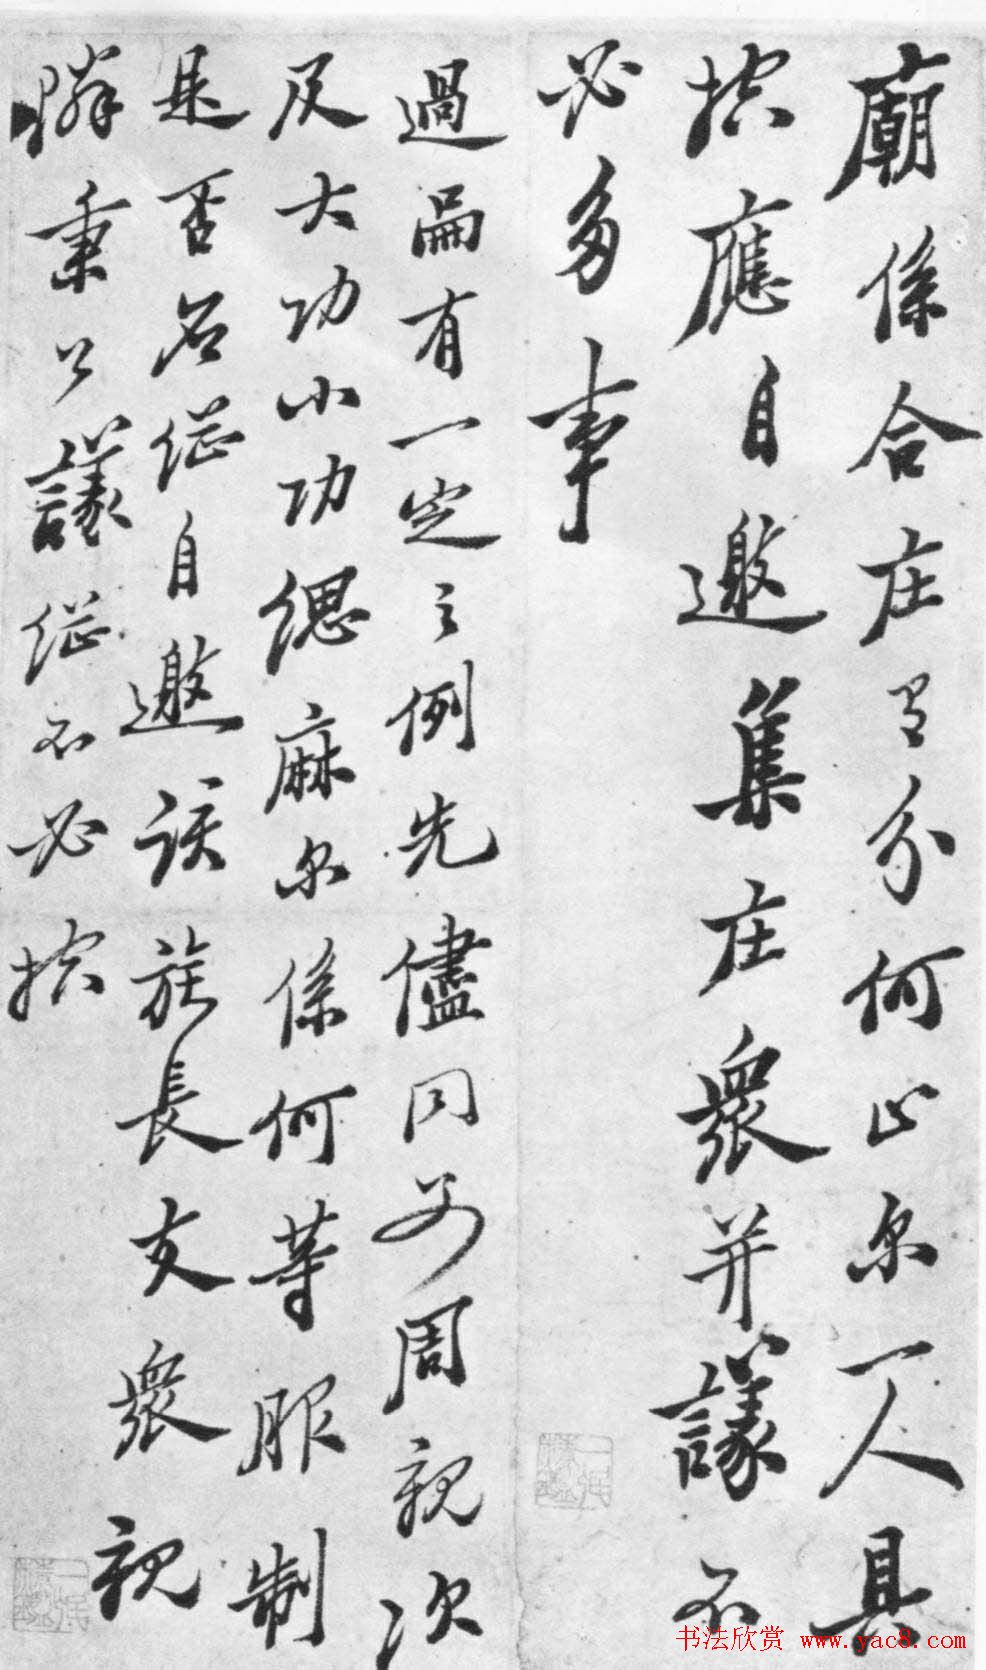 廟係合庄有分何止尔一人具
控應自邀集庄衆并議不
必多事
過有一定之例先儘同父周親次
及大功小功缌麻尔係何等服制
是否继自邀该族長支衆親
隣秉公議继不必控
书法欣赏 www.yac8.com